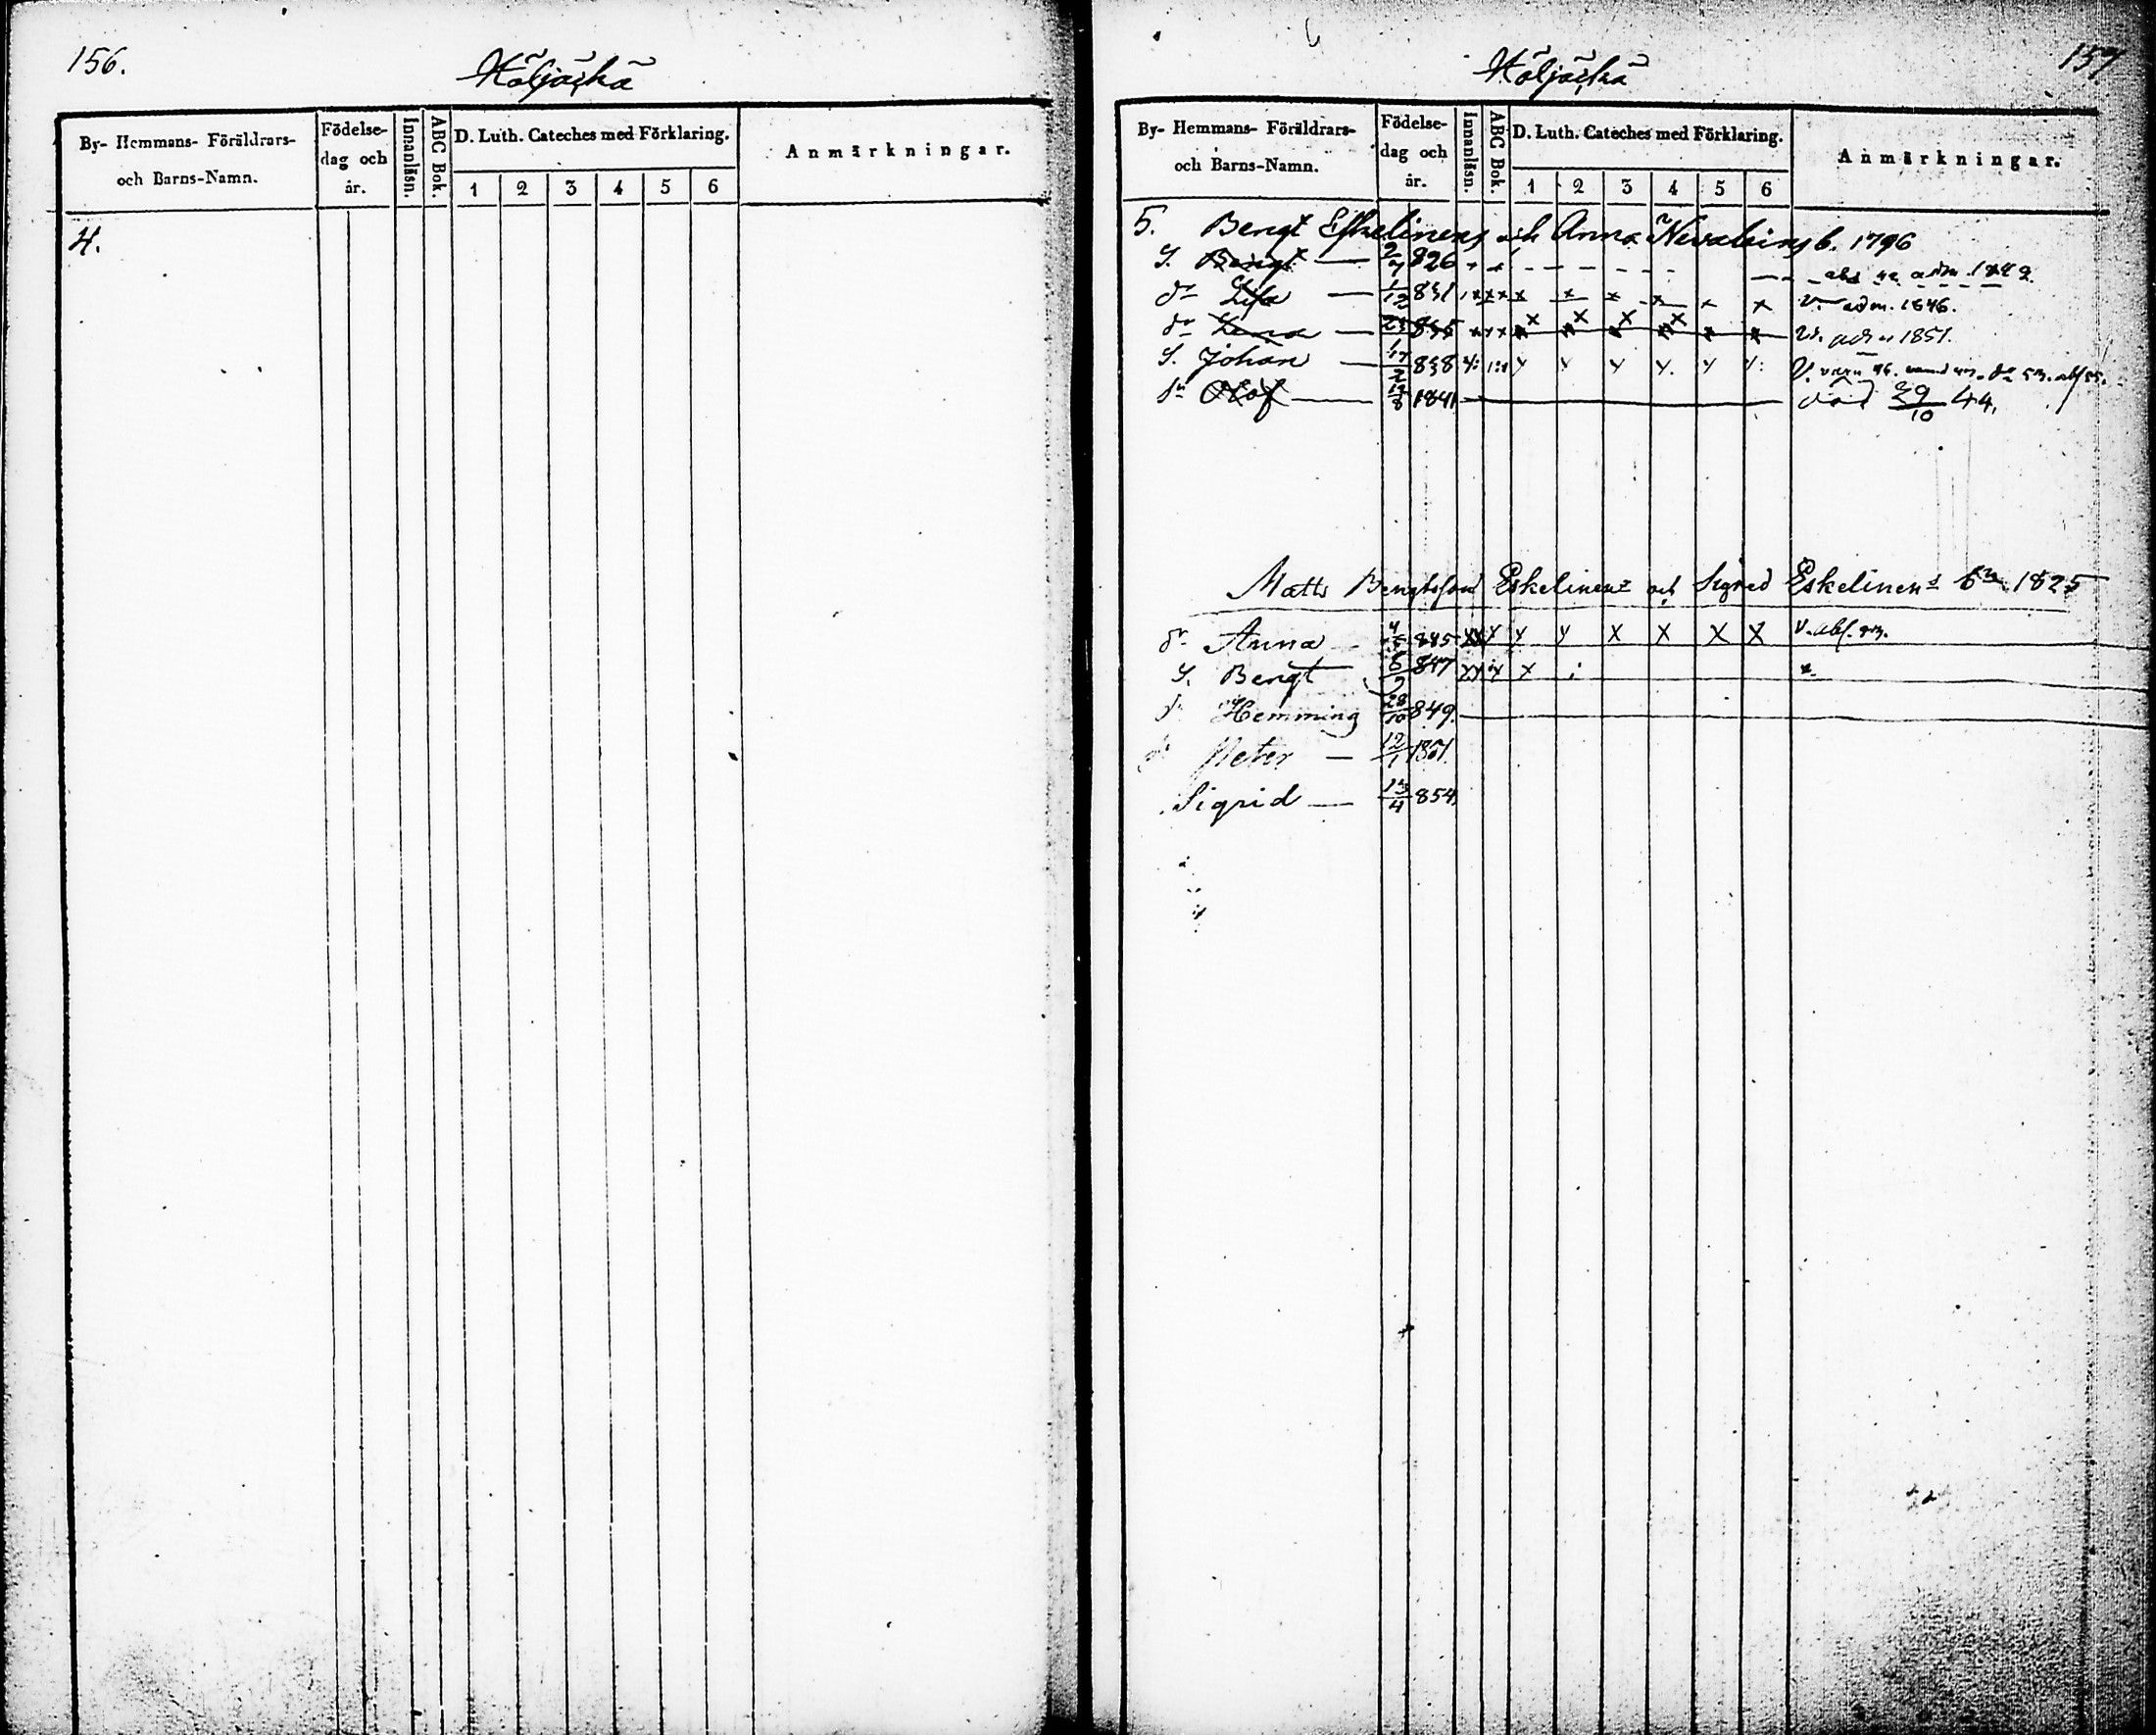 156.
Höljäckä
By- Hemmans- Föräldrars- och Barns-Namn.
Födelse- dag och år.
Innanläsn.
ABC Bok.
D. Luth. Cateches med Förklaring.
1 2 3 4 5 6
Anmärkningar.
4.
157
Höljäckä
By- Hemmans- Föräldrars- och Barns-Namn.
Födelse- dag och år.
Innanläsn.
ABC Bok.
D. Luth. Cateches med Förklaring.
1 2 3 4 5 6
Anmärkningar.
5. Bengt Eskelinens och Anna b. 1796
S. Bengt — 2/7 826
dr Lisa — 1/12 831 x x x x x adm. 1846.
dr Lena — 835 x x x x 1851.
S. Johan — 838
Olof — 12/8 1841 död 29/10 44.
Matts Bengtsson Eskelinens och Sigred Eskelinens bn 1825
dr Anna 845 x x x x V. abs.
S. Bengt 847 x
Hemming 28/10 849.
Peter — 12/1 1851.
Sigrid — 13/4 854